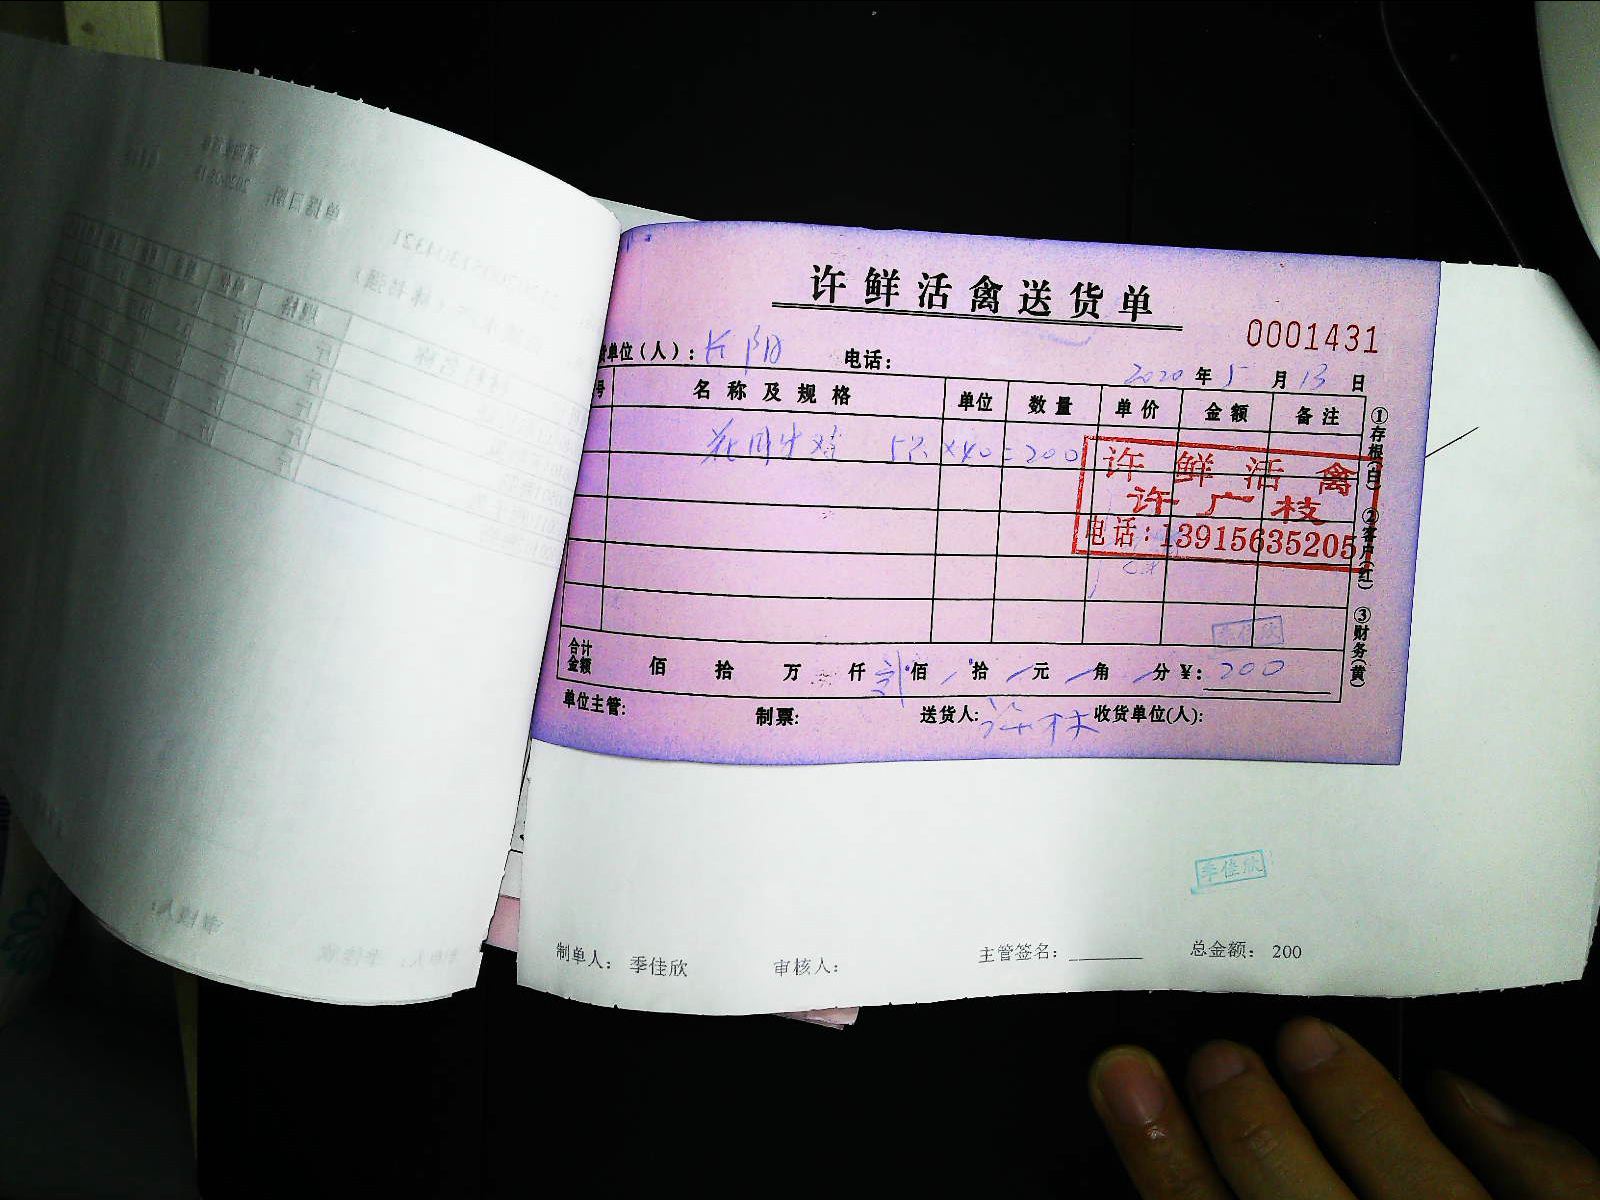 许鲜活禽送货单
0001431
单位(人): 长阳 电话:
2020年5月13日
号 名称及规格 单位 数量 单价 金额 备注
5只×40=200
许鲜活禽
许广枝
电话:13915635205
①存根(白) ②客户(红) ③财务(黄)
季佳欣
合计金额 佰 拾 万 仟 贰佰 拾 元 角 分 ¥: 200
单位主管: 制票: 送货人: 许林 收货单位(人):
季佳欣
制单人: 季佳欣 审核人: 主管签名: 总金额: 200